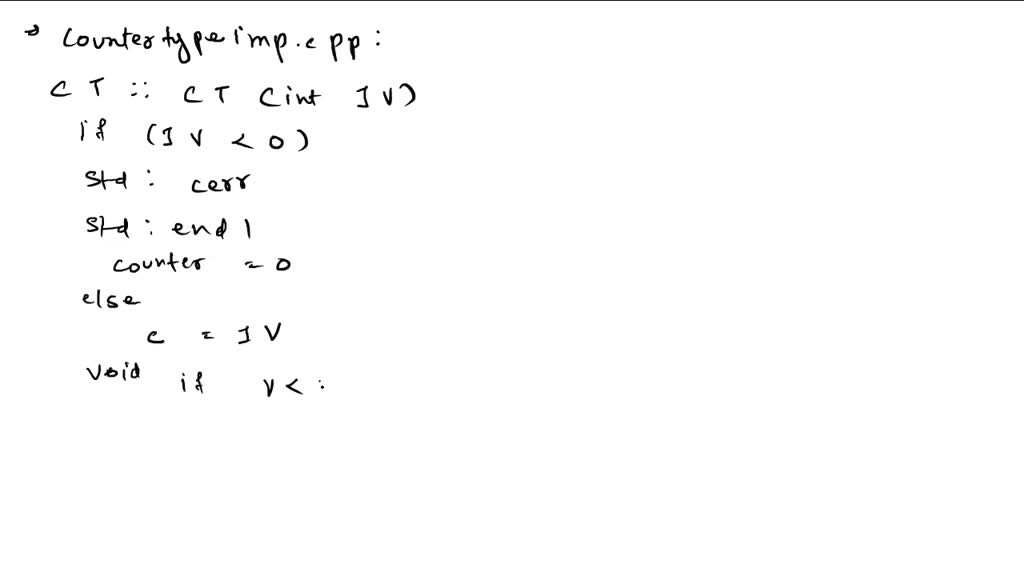 → countertypeimp.cpp :
C T :: C T Cint I V)
if (I V < 0)
std : cerr
std : endl
counter = 0
else
c = I V
void if V < :